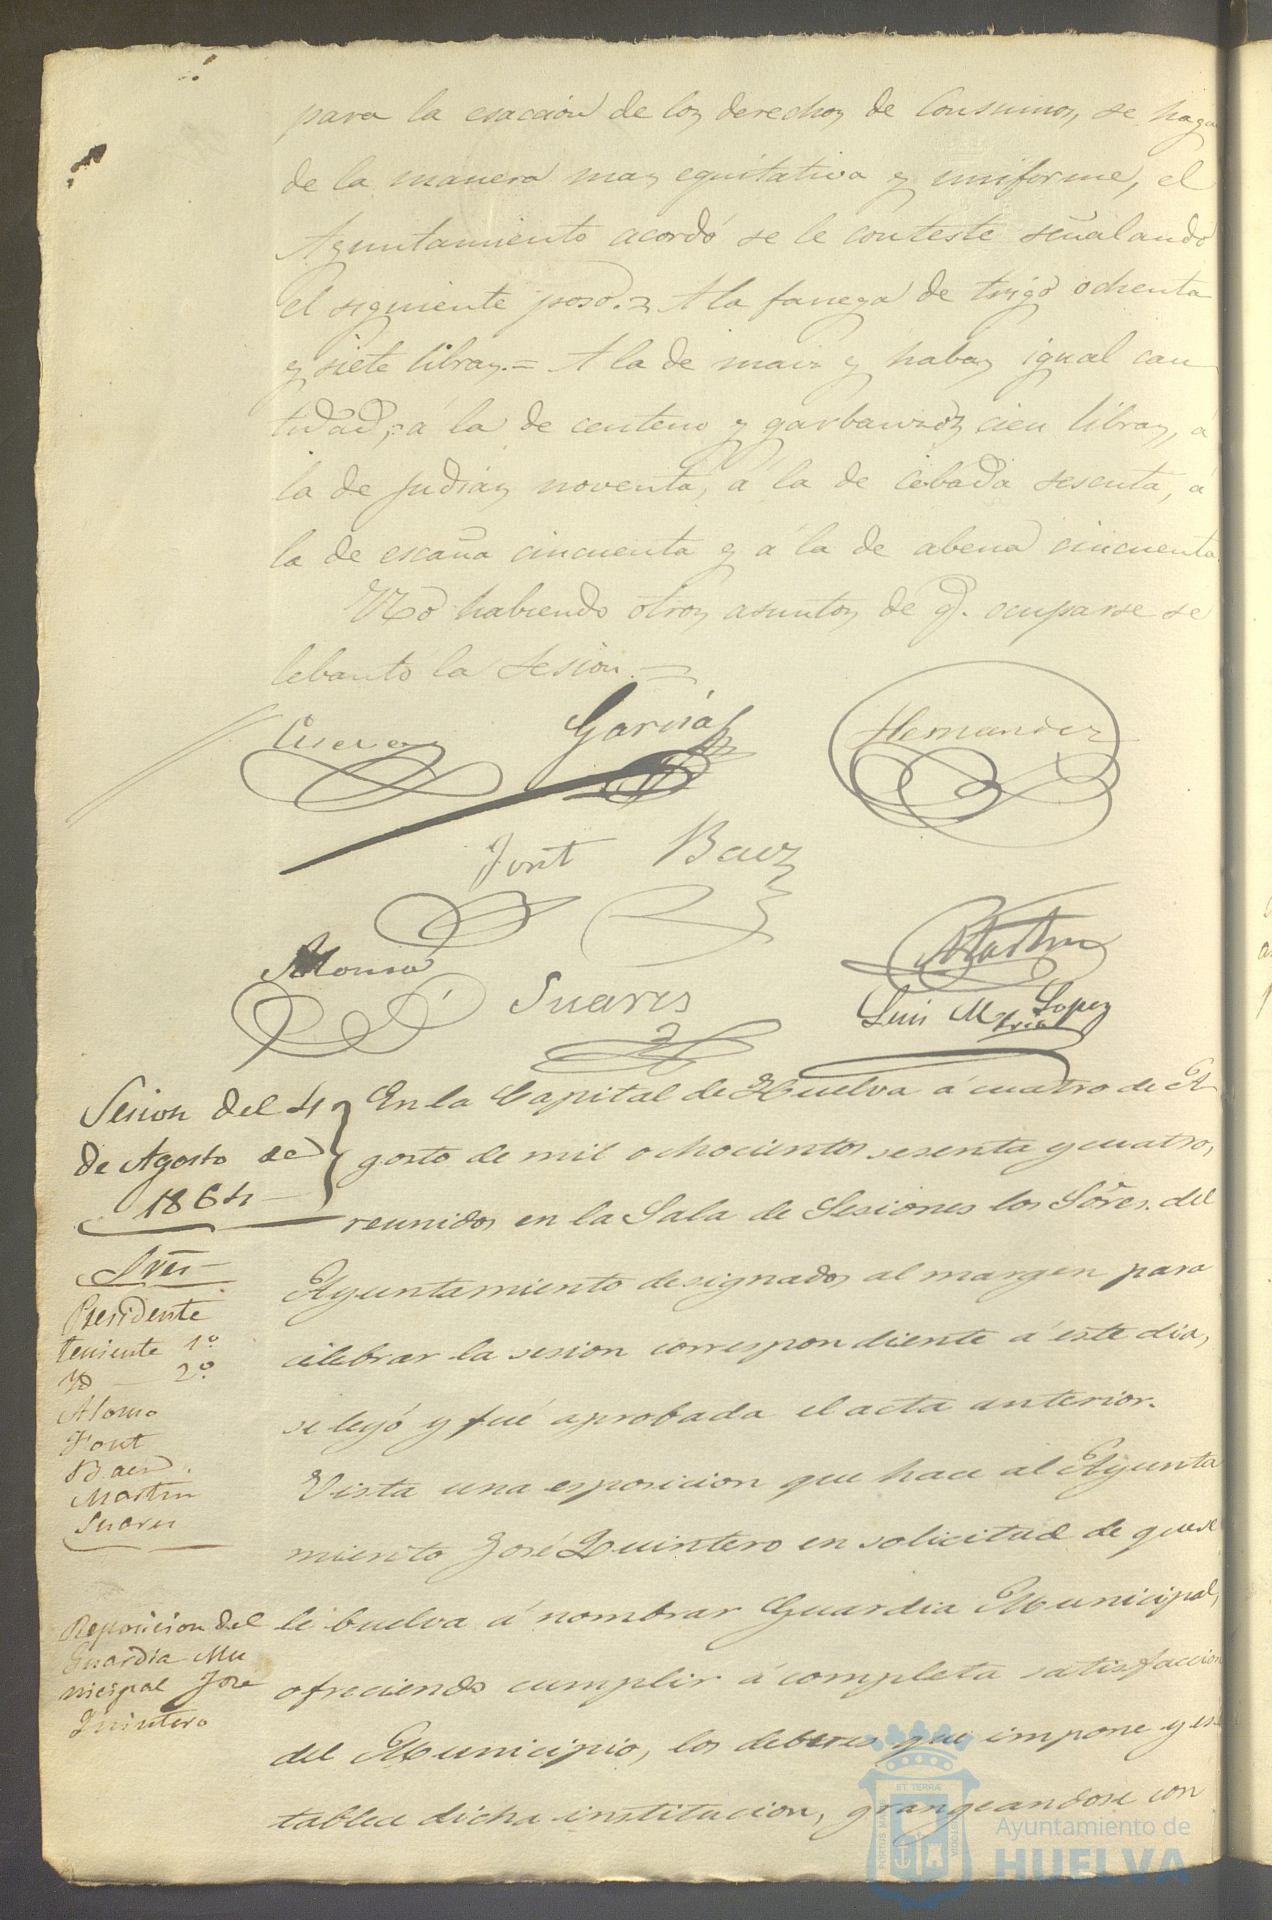 para la esacción de los derechos de Consumos, se haga
de la manera mas equitativa y uniforme, el
Ayuntamiento acordó se le conteste señalando
el siguiente peso. = A la fanega de trigo ochenta
y siete libras. = A la de maiz y habas igual can
tidad, á la de centeno y garbanzos cien libras, á
la de judias noventa, á la de cebada sesenta, á
la de escaña cincuenta y á la de abena cincuenta
No habiendo otros asuntos de q. ocuparse se
lebantó la sesion. =
García
Hernandez
Font Baez
Alonso
Martin
Suares
Luis M. Lopez
Sesion del 4
de Agosto de
1864
En la Capital de Huelva á cuatro de A
gosto de mil ochocientos sesenta y cuatro,
reunidos en la Sala de Sesiones los Sōres. del
Ayuntamiento designados al margen para
celebrar la sesion correspondiente á este dia,
se leyó y fué aprobada el acta anterior.
Sres
Presidente
Teniente 1º
Yd — 2º
Alonso
Font
Baez
Martin
Suares
Vista una esposicion que hace al Ayunta
miento José Quintero en solicitud de que se
le buelva á nombrar Guardia Municipal,
ofreciendo cumplir á completa satisfaccion
del Municipio, los deberes que impone y es
tablece dicha institucion, grangeandose con
Reposicion del
Guardia Mu
nicipal Jose
Quintero
PORTUS MARIS
ET TERRÆ
CUSTODIA
Ayuntamiento de
HUELVA